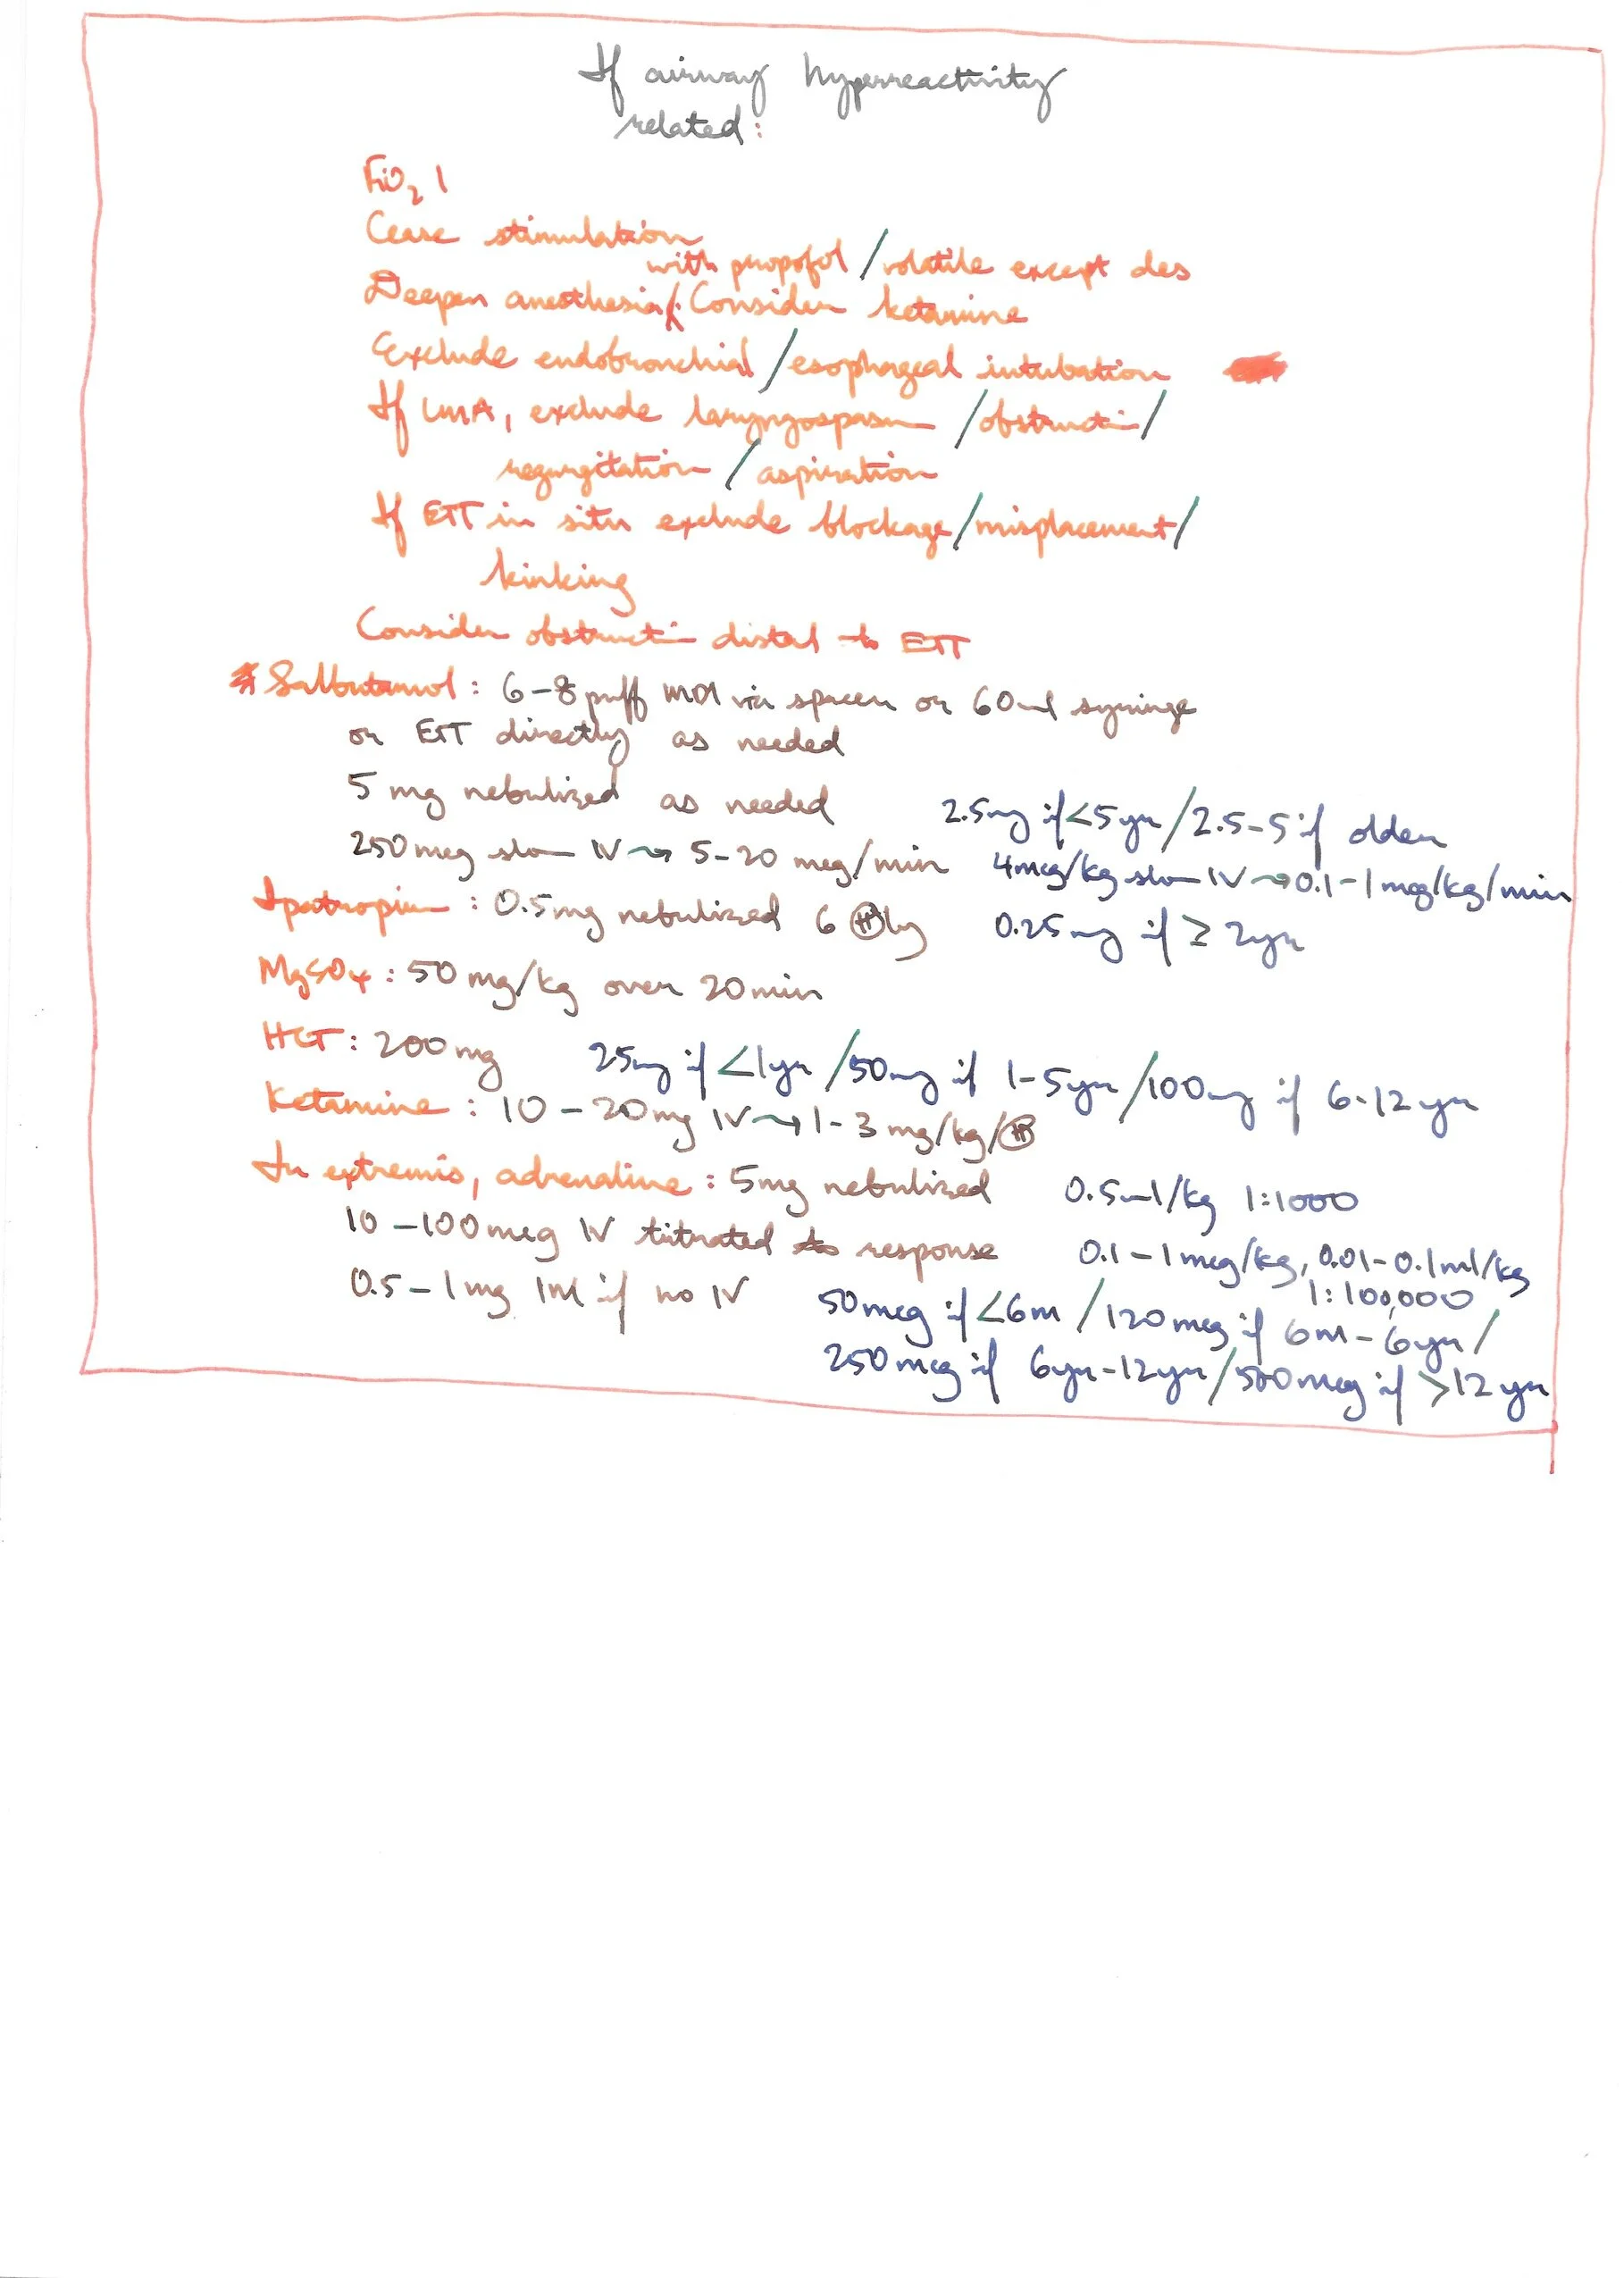 If airway hyperreactivity
related:
FiO₂ 1
Cease stimulation
with propofol / volatile except des
Deepen anesthesia. Consider ketamine
Exclude endobronchial / esophageal intubation
If LMA, exclude laryngospasm / obstructi /
regurgitation / aspiration
If ETT in situ exclude blockage / misplacement /
kinking
Consider obstructi distal to ETT
Salbutamol : 6-8 puff MDI via spacer or 60ml syringe
or ETT directly as needed
5 mg nebulized as needed 2.5mg if <5yr / 2.5-5 if older
250 mcg slow IV → 5-20 mcg/min 4mcg/kg slow IV → 0.1-1 mcg/kg/min
Ipatropium : 0.5mg nebulized 6 Ⓗly 0.25mg if ≥ 2yr
MgSO4 : 50 mg/kg over 20min
HCT : 200mg 25mg if <1yr / 50mg if 1-5yr / 100mg if 6-12 yr
Ketamine : 10 - 20mg IV → 1-3 mg/kg/Ⓗ
In extremis, adrenaline : 5mg nebulized 0.5ml/kg 1:1000
10 - 100mcg IV titrated to response 0.1 - 1mcg/kg, 0.01-0.1ml/kg
1:100,000
0.5 - 1mg IM if no IV 50mcg if <6m / 120mcg if 6m - 6yr /
250mcg if 6yr-12yr / 500mcg if >12 yr